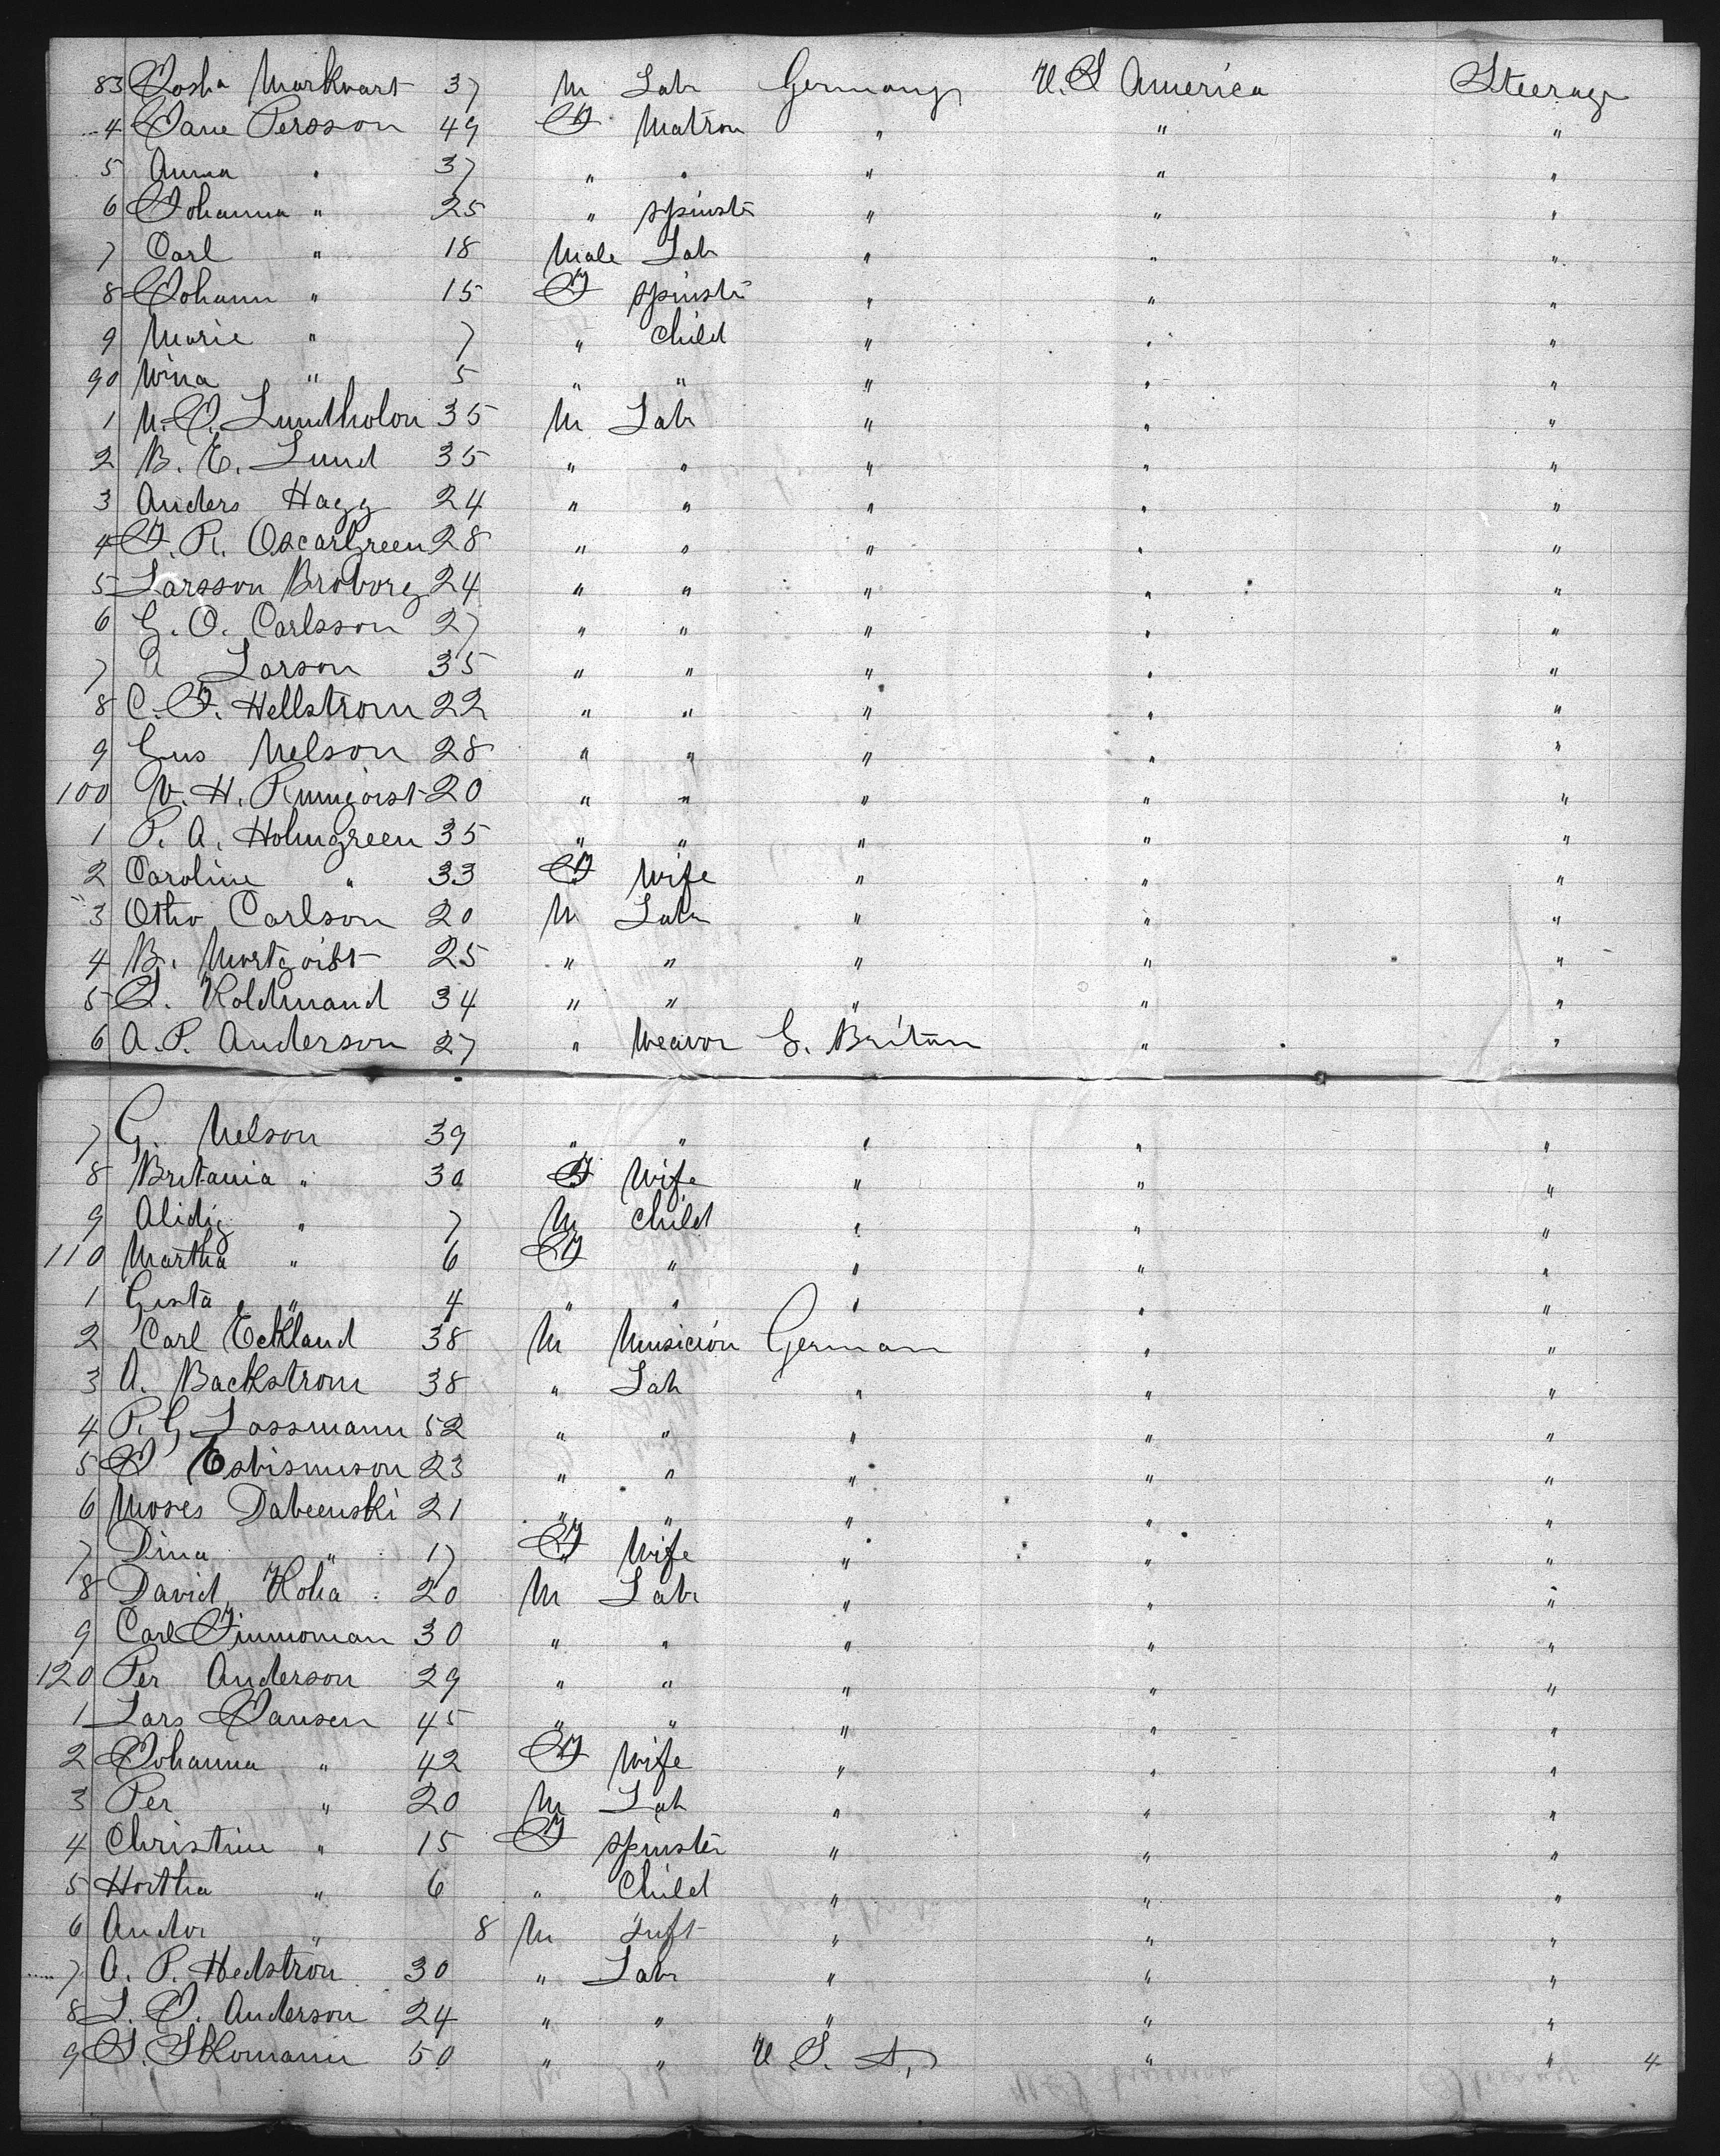 83 Josha Markvart 37 M Labr Germany U.S America Steerage
4 Jane Persson 49 F Matron " " "
5 Anna " 37 " " " " "
6 Johanna " 25 " spinstr " " "
7 Carl " 18 Male Lab " " "
8 Johann " 15 F spinstr " " "
9 Marie " 7 " child " " "
90 Wina " 5 " " " " "
1 N. J. Lundholon 35 M Labr " " "
2 B. E. Lund 35 " " " " "
3 Anders Hagg 24 " " " " "
4 F. R. Oscar Green 28 " " " " "
5 Larsson Broborg 24 " " " " "
6 G. O. Carlsson 27 " " " " "
7 A Larson 35 " " " " "
8 C. F. Hellstrom 22 " " " " "
9 Gus Nelson 28 " " " " "
100 V. H. 20 " " " " "
1 P. A. Holmgreen 35 " " " " "
2 Caroline " 33 F Wife " " "
3 Otto Carlson 20 M Labr " " "
4 B. 25 " " " " "
5 Holdmand 34 " " " " "
6 A. P. Anderson 27 " Weavor G. Britan " "
7 G. Nelson 39 " " " " "
8 Britania " 30 F Wife " " "
9 Alidig " 7 M Child " " "
110 Martha " 6 F " " " "
1 Gusta " 4 " " " " "
2 Carl Eckland 38 M Musicion German " "
3 A. Backstrom 38 " Lab " " "
4 P. G. Lassmann 52 " " " " "
5 J 23 " " " " "
6 Moses Dabeenski 21 " " " " "
7 Dina " 17 F Wife " " "
8 David Koha 20 M Labr " " "
9 Carl Timmoman 30 " " " " "
120 Per Anderson 29 " " " " "
1 Lars Jansen 45 " " " " "
2 Johanna " 42 F Wife " " "
3 Per " 20 M Lab " " "
4 Christine " 15 F spinster " " "
5 Hortha " 6 " Child " " "
6 Andor " 8 M Inft " " "
7 A. P. Hedstron 30 " Labr " " "
8 L. J. Anderson 24 " " " " "
9 S. Skomann 50 " " U. S. A, " " 4